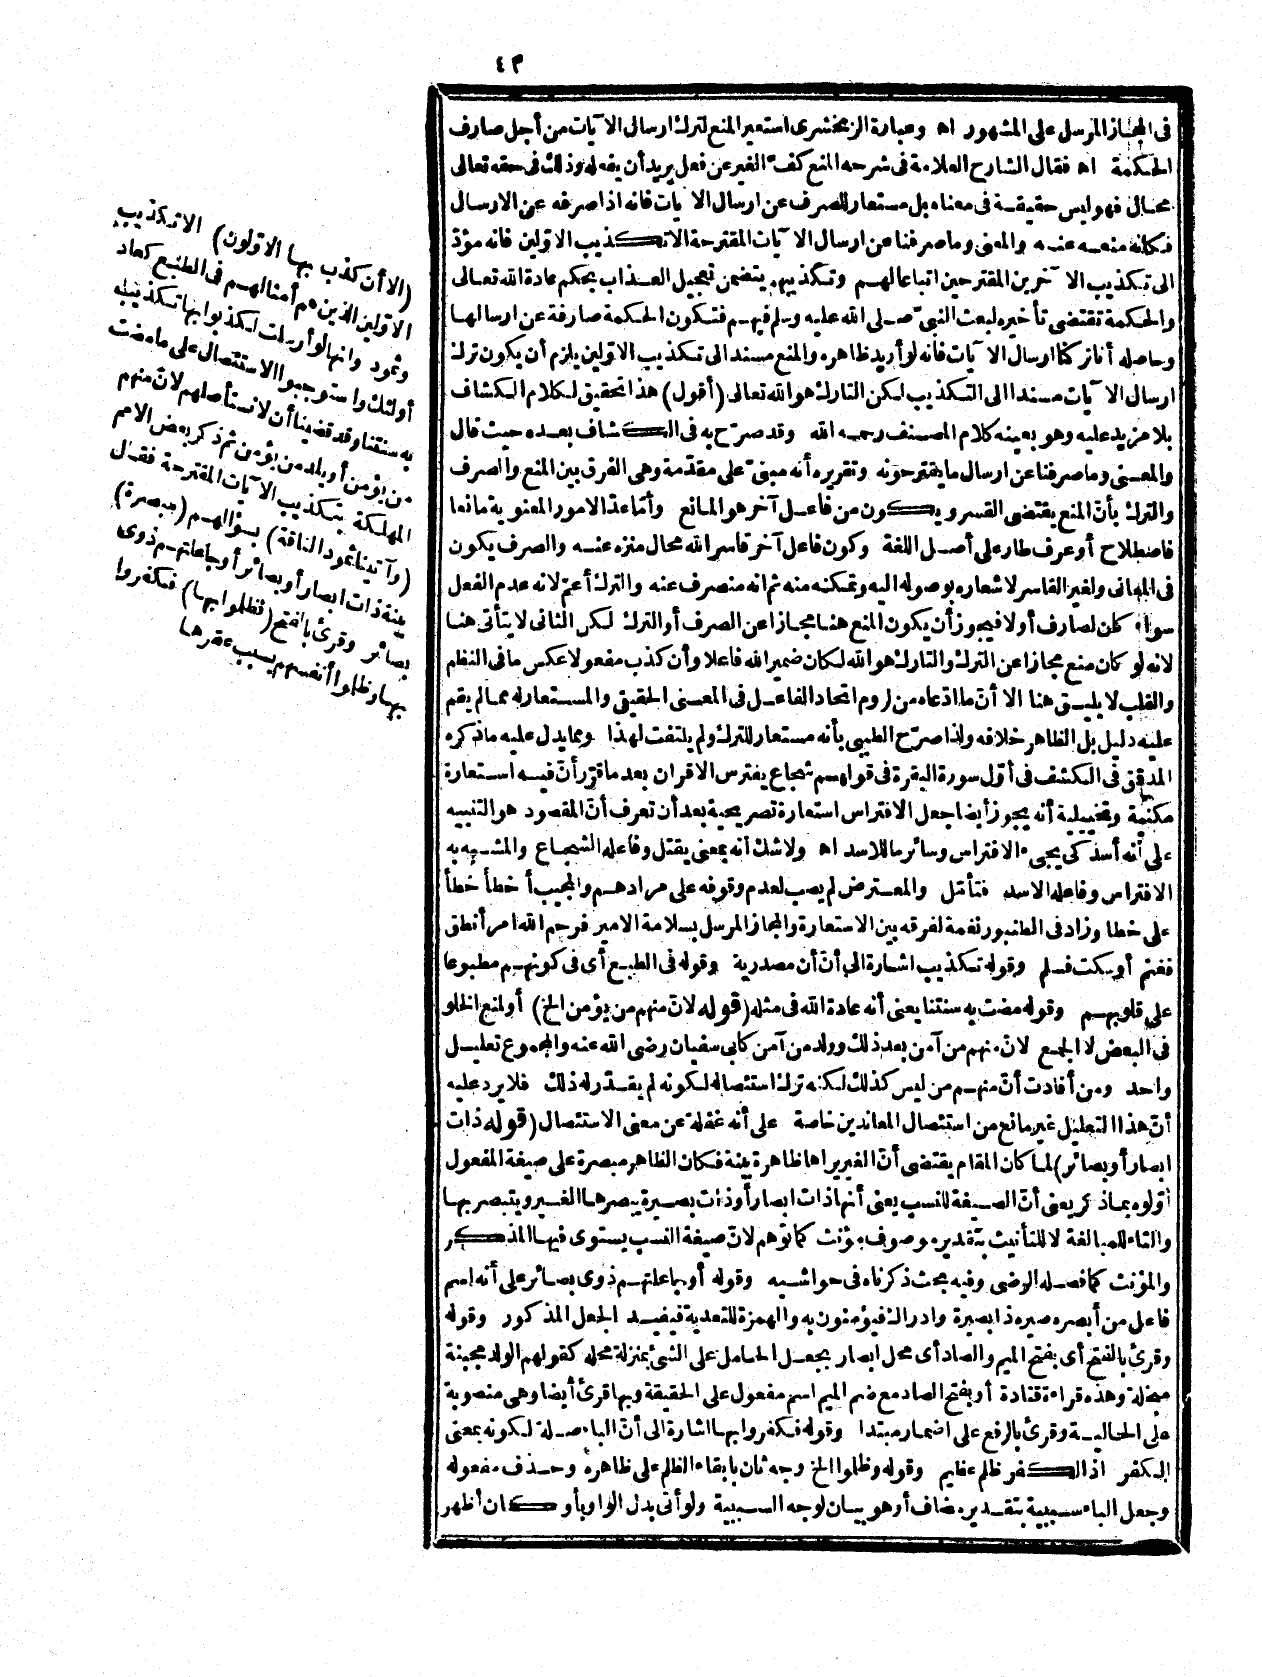 ٤٣
فى المجاز المرسل على المشهور اه وعبارة الزمخشرى استعير المنع لترك ارسال الآيات من أجل صارف
الحكمة اه فقال الشارح العلامة فى شرحه المنع كف الغير عن فعل يريد أن يفعله وذلك فى حقه تعالى
محال فهو ليس حقيقة فى معناه بل مستعار للصرف عن ارسال الآيات فانه اذا صرفه عن الارسال
فكانه منعه عنه والمعنى وما صرفنا عن ارسال الآيات المقترحة الا تكذيب الاولين فانه مؤد
الى تكذيب الآخرين المقترحين اتباعا لهم وتكذيبهم يتضمن تعجيل العذاب بحكم عادة الله تعالى
والحكمة تقتضى تأخيره لبعث النبىّ صلى الله عليه وسلم فيهم فتكون الحكمة صارفة عن ارسالها
وحاصله أنا تركنا ارسال الآيات فانه لو أريد ظاهره والمنع مسند الى تكذيب الاولين يلزم أن يكون ترك
ارسال الآيات مسندا الى التكذيب لكن التارك هو الله تعالى (أقول) هذا تحقيق لكلام الكشاف
بلا مزيد عليه وهو بعينه كلام المصنف رحمه الله وقد صرّح به فى الكشاف بعده حيث قال
والمعنى وما صرفنا عن ارسال ما يقترحونه وتقريره أنه مبنىّ على مقدّمة وهى الفرق بين المنع والصرف
والترك بأنّ المنع يقتضى القسر ويكون من فاعل آخر هو المانع وأمّا عدّ الامور المعنوية مانعا
فاصطلاح أو عرف طار على أصل اللغة وكون فاعل آخر قاسر الله محال منزه عنه والصرف يكون
فى المعانى ولغير القاسر لاشعاره بوصوله اليه وتمكنه منه ثم انه منصرف عنه والترك أعمّ لانه عدم الفعل
سواء كان لصارف أولا فيجوز أن يكون المنع هنا مجازا عن الصرف أو الترك لكن الثانى لا يتأتى هنا
لانه لو كان منع مجازا عن الترك والتارك هو الله لكان ضمير الله فاعلا وأن كذب مفعولا عكس ما فى النظم
والقلب لا يليق هنا الا أنّ ما ادّعاه من لزوم اتحاد الفاعل فى المعنى الحقيقى والمستعار له مما لم يقم
عليه دليل بل الظاهر خلافه ولذا صرّح الطيبى بأنه مستعار للترك ولم يلتفت لهذا ومما يدل عليه ما ذكره
المدقق فى الكشف فى أوّل سورة البقرة فى قولهم شجاع يفترس الاقران بعد ما قرّر أنّ فيه استعارة
مكنية وتخييلية أنه يجوز أيضا جعل الافتراس استعارة تصريحية بعد أن تعرف أنّ المقصود هو التنبيه
على أنه أسد كى يجىء الافتراس وسائر ما للاسد اه ولا شك أنه بمعنى يقتل وفاعله الشجاع والمشبه به
الافتراس وفاعله الاسد فتأمّل والمعترض لم يصب لعدم وقوفه على مرادهم والمجيب أخطأ خطأ
على خطا وزاد فى الطنبور نغمة لفرقه بين الاستعارة والمجاز المرسل بسلامة الامير فرحم الله امرأ نطق
فغنم أو سكت فسلم وقوله تكذيب اشارة الى أنّ أن مصدرية وقوله فى الطبع أى فى كونهم مطبوعا
على قلوبهم وقوله مضت به سنتنا يعنى أنه عادة الله فى مثله (قوله لانّ منهم من يؤمن الخ) أو لمنع الخلو
فى البعض لا الجمع لانّ منهم من آمن بعد ذلك وولد من آمن كابى سفيان رضى الله عنه والمجموع تعليل
واحد ومن أفادت أنّ منهم من ليس كذلك لكنه ترك استئصاله لكونه لم يقدّر له ذلك فلا يرد عليه
أنّ هذا التعليل غير مانع من استئصال المعاندين خاصة على أنه غفلة عن معنى الاستئصال (قوله ذات
ابصار أو بصائر) لما كان المقام يقتضى أنّ الغير يراها ظاهرة بينة فكان الظاهر مبصرة على صيغة المفعول
أوّلوه بما ذكر يعنى أنّ الصيغة للنسب يعنى أنها ذات ابصار أو ذات بصيرة يبصرها الغير ويتبصر بها
والتاء للمبالغة لا للتأنيث بتقدير موصوف مؤنث كما توهم لانّ صيغة النسب يستوى فيها المذكر
والمؤنث كما فصله الرضى وفيه بحث ذكرناه فى حواشيه وقوله أو جاعلتهم ذوى بصائر على أنه اسم
فاعل من أبصره صيره ذا بصيرة وادراك فيؤمنون به والهمزة للتعدية فيفيد الجعل المذكور وقوله
وقرئ بالفتح أى بفتح الميم والصاد أى محل ابصار بجعل الحامل على الشئ بمنزلة محله كقولهم الولد مجبنة
مبخلة وهذه قراءة قتادة أو بفتح الصاد مع ضم الميم اسم مفعول على الحقيقة وبها قرئ أيضا وهى منصوبة
على الحالية وقرئ بالرفع على اضمار مبتدا وقوله فكفروا بها اشارة الى أنّ الباء صلة لكونه بمعنى
الكفر اذ الكفر ظلم عظيم وقوله وظلموا الخ وجه ثان بابقاء الظلم على ظاهره وحذف مفعوله
وجعل الباء سببية بتقدير مضاف أو هو بيان لوجه السببية ولو أتى بدل الواو بأو كان أظهر
(الا أن كذب بها الاولون) الا تكذيب
الاولين الذين هم أمثالهم فى الطبع كعاد
وثمود وانها لو أرسلت لكذبوا بها تكذيب
أولئك واستوجبوا الاستئصال على ما مضت
به سنتنا وقد قضينا أن لا نستأصلهم لانّ منهم
من يؤمن أو يلد من يؤمن ثم ذكر بعض الامم
المهلكة بتكذيب الآيات المقترحة فقال
(وآتينا ثمود الناقة) بسؤالهم (مبصرة)
بينة ذات ابصار أو بصائر أو جاعلتهم ذوى
بصائر وقرئ بالفتح (فظلموا بها) فكفروا
بها وظلموا أنفسهم بسبب عقرها